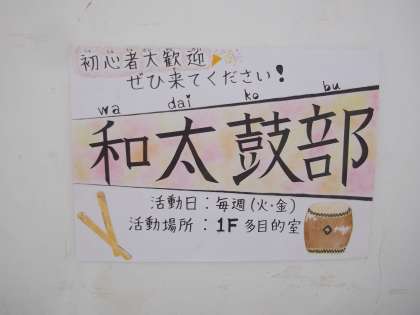 初心者大歓迎
ぜひ来てください!
wa dai ko bu
和太鼓部
活動日：毎週(火・金)
活動場所：1F 多目的室